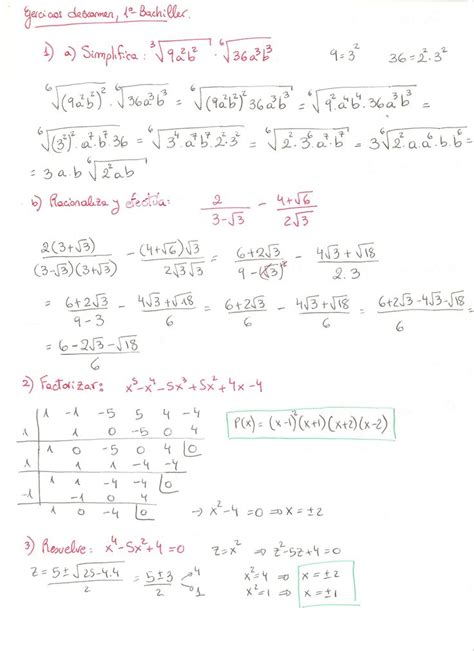 Ejercicios de examen, 1º Bachiller.
1) a) Simplifica: ∛(9a²b²) · ⁶√(36a³b³)   9=3²   36=2²·3²
⁶√((9a²b²)²) · ⁶√(36a³b³) = ⁶√((9a²b²)² 36a³b³) = ⁶√(9²a⁴b⁴·36a³b³) =
⁶√((3²)²·a⁷b⁷·36) = ⁶√(3⁴a⁷b⁷·2²·3²) = ⁶√(2²·3⁶·a⁷·b⁷) = 3⁶√(2²·a·a⁶·b·b⁶) =
= 3·a·b ⁶√(2²ab)
b) Racionaliza y efectúa: 2/(3-√3) - (4+√6)/(2√3)
2(3+√3)/((3-√3)(3+√3)) - (4+√6)√3/(2√3√3) = (6+2√3)/(9-(√3)²) - (4√3+√18)/(2·3)
= (6+2√3)/(9-3) - (4√3+√18)/6 = (6+2√3)/6 - (4√3+√18)/6 = (6+2√3-4√3-√18)/6 =
= (6-2√3-√18)/6
2) Factorizar: x⁵-x⁴-5x³+5x²+4x-4
1 -1 -5 5 4 -4
1 1 0 -5 0 4
1 0 -5 0 4 0
P(x)=(x-1)²(x+1)(x+2)(x-2)
1 1 1 -4 -4
1 1 -4 -4 0
-1 -1 0 4
1 0 -4 0 → x²-4=0 ⇒ x=±2
3) Resuelve: x⁴-5x²+4=0   z=x² ⇒ z²-5z+4=0
z = (5±√(25-4·4))/2 = (5±3)/2 4 1
x²=4 ⇒ x=±2
x²=1 ⇒ x=±1